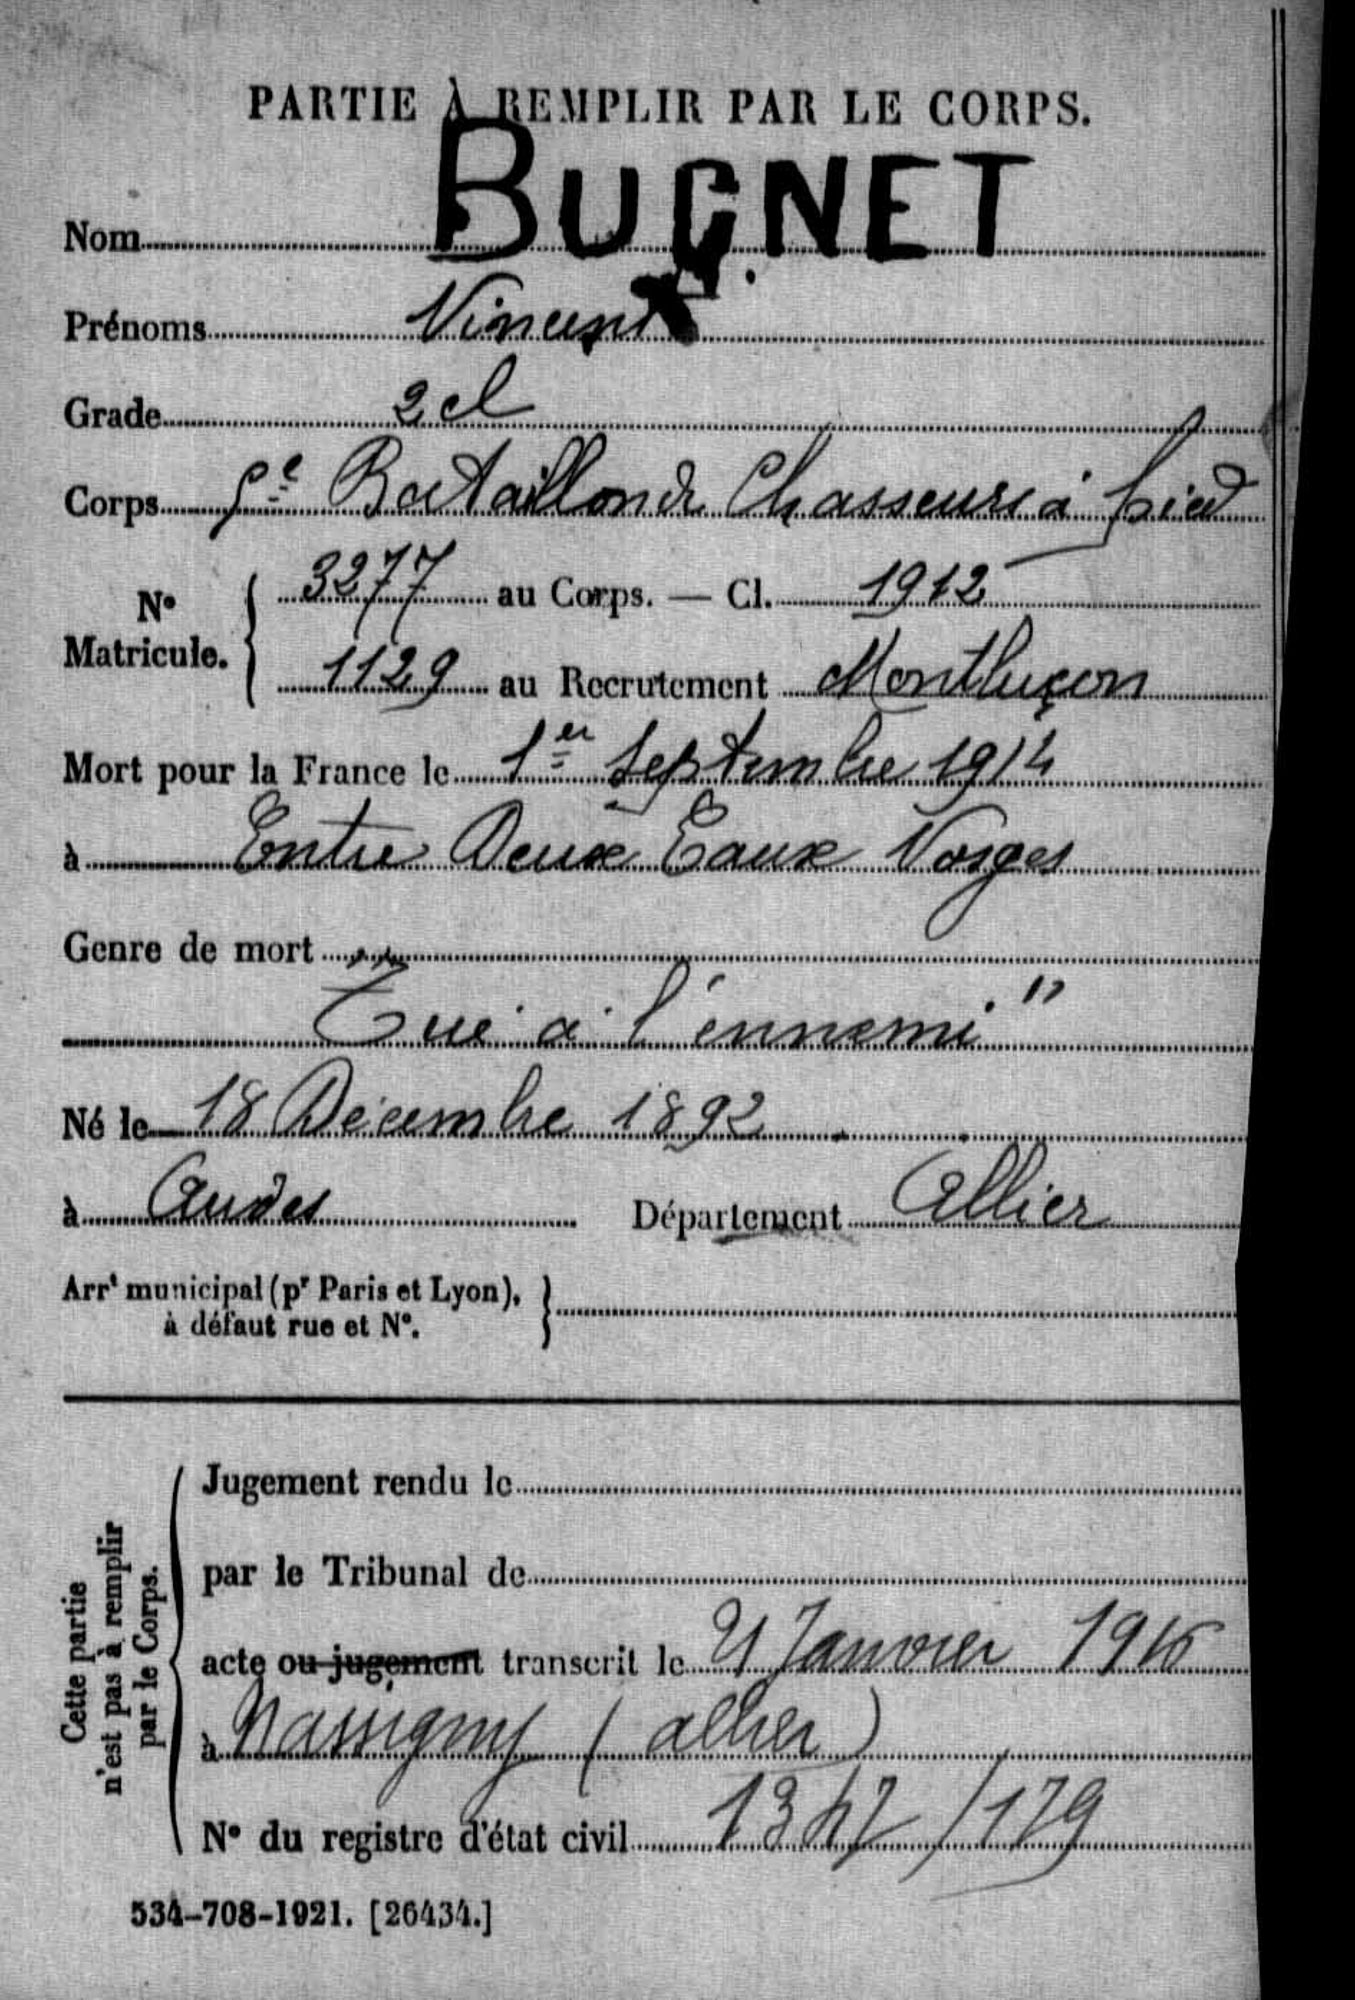 PARTIE À REMPLIR PAR LE CORPS.
Nom BUGNET
Prénoms Vincent
Grade 2 cl
Corps 5e Bataillon de Chasseurs à pied
No Matricule. 3277 au Corps. — Cl. 1912
1129 au Recrutement Montluçon
Mort pour la France le 1er Septembre 1914
à Entre Deux Eaux Vosges
Genre de mort
"Tué à l'ennemi"
Né le 18 Décembre 1892
à Audes Département Allier
Arrt municipal (pr Paris et Lyon),
à défaut rue et No.
Cette partie
n'est pas à remplir
par le Corps.
Jugement rendu le
par le Tribunal de
acte ou jugement transcrit le 21 Janvier 1916
à Nassigny (allier)
No du registre d'état civil /179
534-708-1921. [26434.]